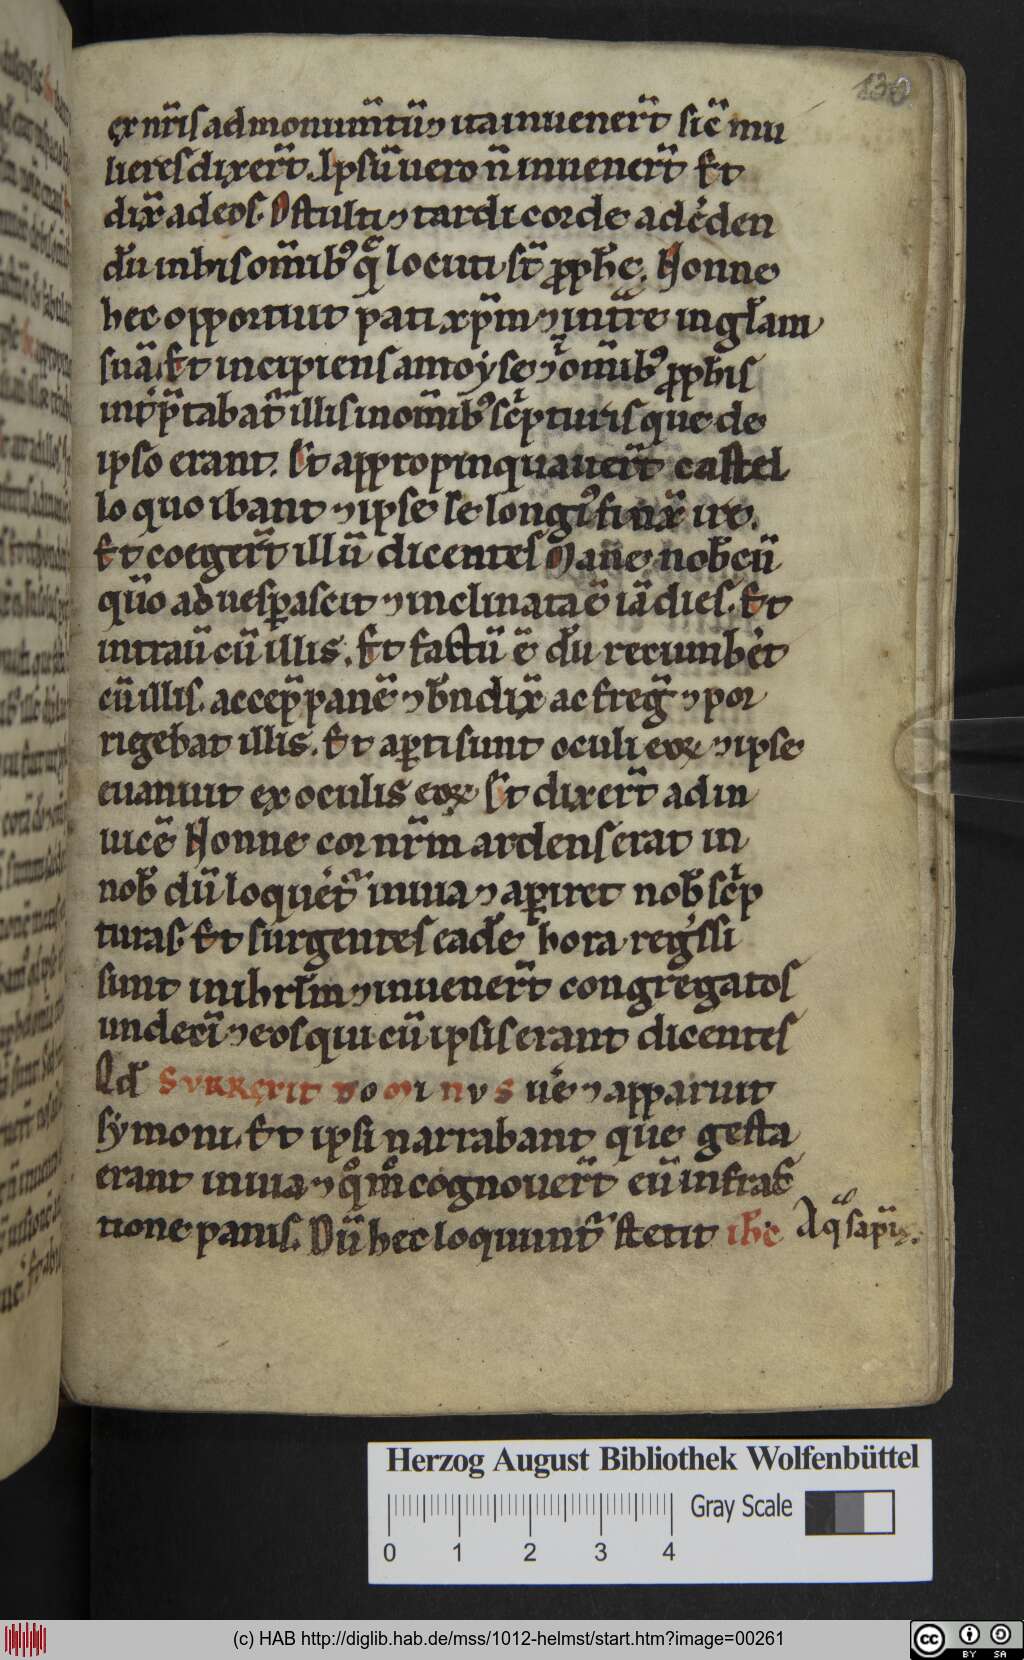 130
ex nr̄is ad monum̄tū ⁊ ita inuener̄t sic̄ mu
lieres dixer̄t. Ipsū uero n̄ inuener̄t Et
dix̄ ad eos. O stulti ⁊ tardi corde ad c̓den
dū in his om̄ib᷒ q̄ locuti st̄ ꝓphe. Nonne
hec opportuit pati xp̄m ⁊ int̄re in gl̄am
suā. Et incipiens a moyse ⁊ om̄ib᷒ ꝓphis
int̓p̄tabat᷑ illis in om̄ib᷒ sc̓pturis que de
ipso erant. Et appropinquauer̄t castel
lo quo ibant ⁊ ipse se longi᷒ finx̄ ire.
Et coeger̄t illū dicentes Mane nob̄cū
qm̄o aduesꝑascit ⁊ inclinata ē iā dies. Et
intrauī cū illis. Et factū ē dū recumb̓et
cū illis. accep̄ panē ⁊ bn̄dix̄ ac freḡ ⁊ por
rigebat illis. Et aꝑti sunt oculi eoꝝ ⁊ ipse
euanuit ex oculis eoꝝ Et dixer̄t ad in
uicē Nonne cor nr̄m ardens erat in
nob̄ dū loqueret᷑ in uia ⁊ aꝑiret nob̄ sc̓p
turas. Et surgentes eadē hora reg̓ssi
sunt in ihrl̄m ⁊ inuener̄t congregatos
undecī ⁊ eos qui cū ipsis erant dicentes
Qd̄ SVRREXIT DOMINVS ue̓ ⁊ apparuit
symoni. Et ipsi narrabant que gesta
erant in uia ⁊ qͦm̊ cognouer̄t eū in frac
tione panis. Dū hec loquunt᷑ stetit ihc̄
Herzog August Bibliothek Wolfenbüttel
Gray Scale
0 1 2 3 4
(c) HAB http://diglib.hab.de/mss/1012-helmst/start.htm?image=00261
cc BY SA